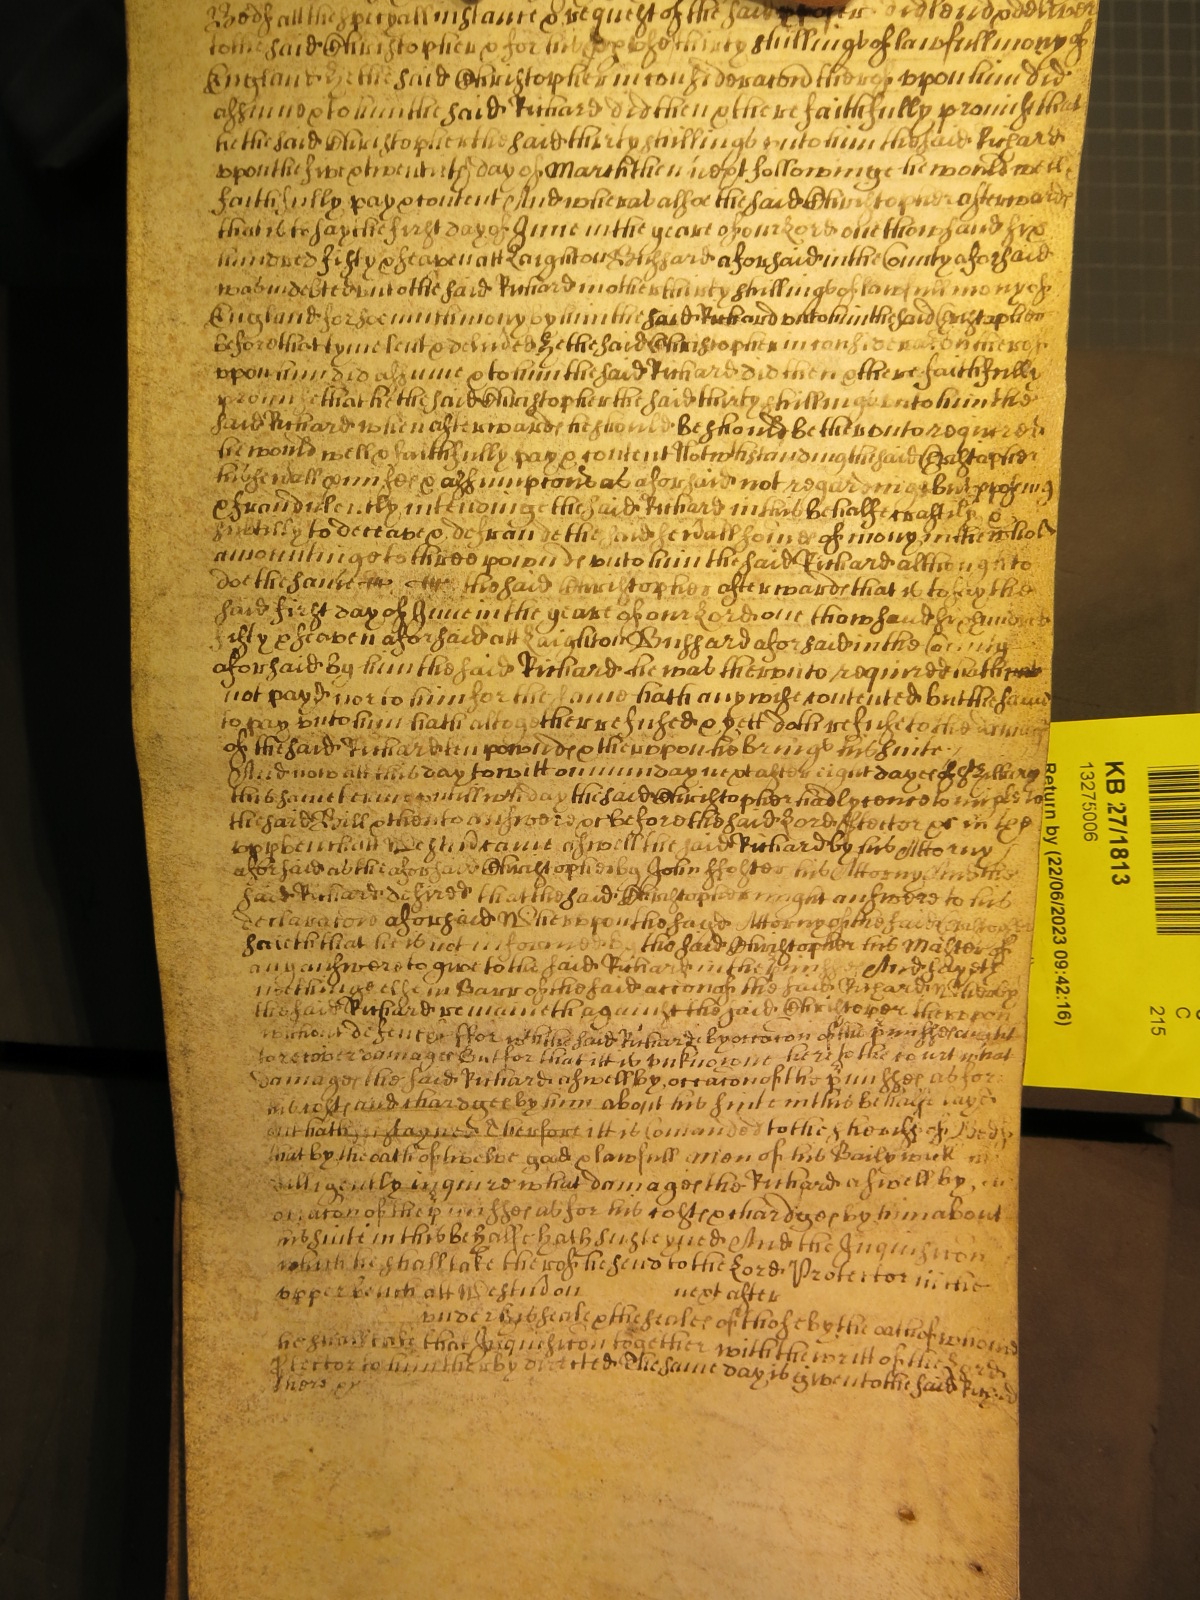 Bedf att the speciall instance & request of the said did lend & deliver
to the said Christopher & for his thirty shillings of lawfull mony of
England he the said Christopher in consideracon therof upon him did
assume & to him the said Richard did then & there faithfully promise that
he the said Christopher the said thirty shillings unto him the said Richard
upon the five & twentieth day of March then next followinge he would well &
faithfully pay & content And wheras alsoe the said Christopher afterwards
that is to say the first day of June in the yeare of our Lord one thowsand six
hundred fifty & seaven att Laighton Buzzard aforsaid in the County aforsaid
was indebted unto the said Richard in other thirty shillings of lawfull mony of
England for soe much mony by him the said Richard unto him the said Christopher
before that tyme lent & delivered he the said Christopher in consideracon therof
upon him did assume & to him the said Richard did then & there faithfully
promise that he the said Christopher the said thirty shillings unto him the
said Richard when afterwards he should be should be therunto required
he would well & faithfully pay & content Notwithstandinge the said Christopher
his sevall pmises & assumpcons as aforsaid not regardinge but
& fraudulently intendinge the said Richard in this behalfe craftily &
subtilly to deceave & defraude the said sevall somes of mony in the whole
amountinge to three pounds unto him the said Richard although to
doe the same the said Christopher afterwards that is to say the
said first day of June in the yeare of our Lord one thowsand six hundred
fifty & seaven aforsaid att Laighton Buzzard aforsaid in the County
aforsaid by him the said Richard he was therunto required hath
not payd nor to him for the same hath any wise contented but the same
to pay unto him hath altogether refused & yett doth refuse to the damage
of the said Richard ten pounds & therupon he brings his suite
And now att this day to witt on munday next after eight dayes of
this same terme untill wch day the said Christopher had lycence to imple to
the said Bill & then to answere &c before the said Lord Ptector &c in the
upper bench att Westm came aswell the said Richard by his Attorny
aforsaid as the aforsaid Christopher by John ffoster his Attorny And the
said Richard desired that the said Christopher might answere to his
declaracon aforsaid Wherupon the said Attorny of the said Christopher
saieth that he is not informed by the said Christopher his Master of
any answere to give to the said Richard in the pmisses And sayeth
nothinge else in Barr of the said accon of the said Richard Wherby
the said Richard remaineth against the said Christoper therupon
without defence ffor which the said Richard by occacon of the pmisses ought
to recover damages But for that itt is unknowne here to the court what
damages the said Richard aswell by occacon of the pmisses as for
his costs and chardges by him about his suite in this behalfe layd
out hath Therfore itt is comanded to the Sheriffe of Bedf
that by the oath of twelve good & lawfull men of his Bailywick
dilligently inquire what damages the Richard aswell by
occacon of the pmisses as for his costs & chardges by him about
his suite in this behalfe hath susteyned And the Inquisicon
which he shall take therof he send to the Lord Protector in the
upper bench att Westm on next after
under his seale & the seales of those by the oath of whome
he shall take that Inquisicon together with the writt of the Lord
Ptector to him therby directed The same day is given to the said Richard
there &c
KB 27/1813
13275006
Return by (22/06/2023 09:42:16)
C
215